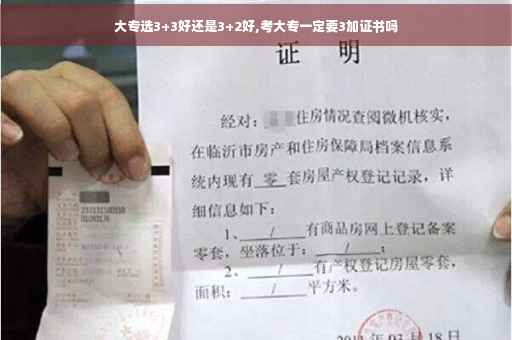 大专选3+3好还是3+2好,考大专一定要3加证书吗
证 明
经对: 住房情况查阅微机核实,
在临沂市房产和住房保障局档案信息系
统内现有 零 套房屋产权登记记录,详
细信息如下:
1、 / 有商品房网上登记备案
零套,坐落位于: / ;
2、 / 有产权登记房屋零套,
面积: / 平方米。
03月18日